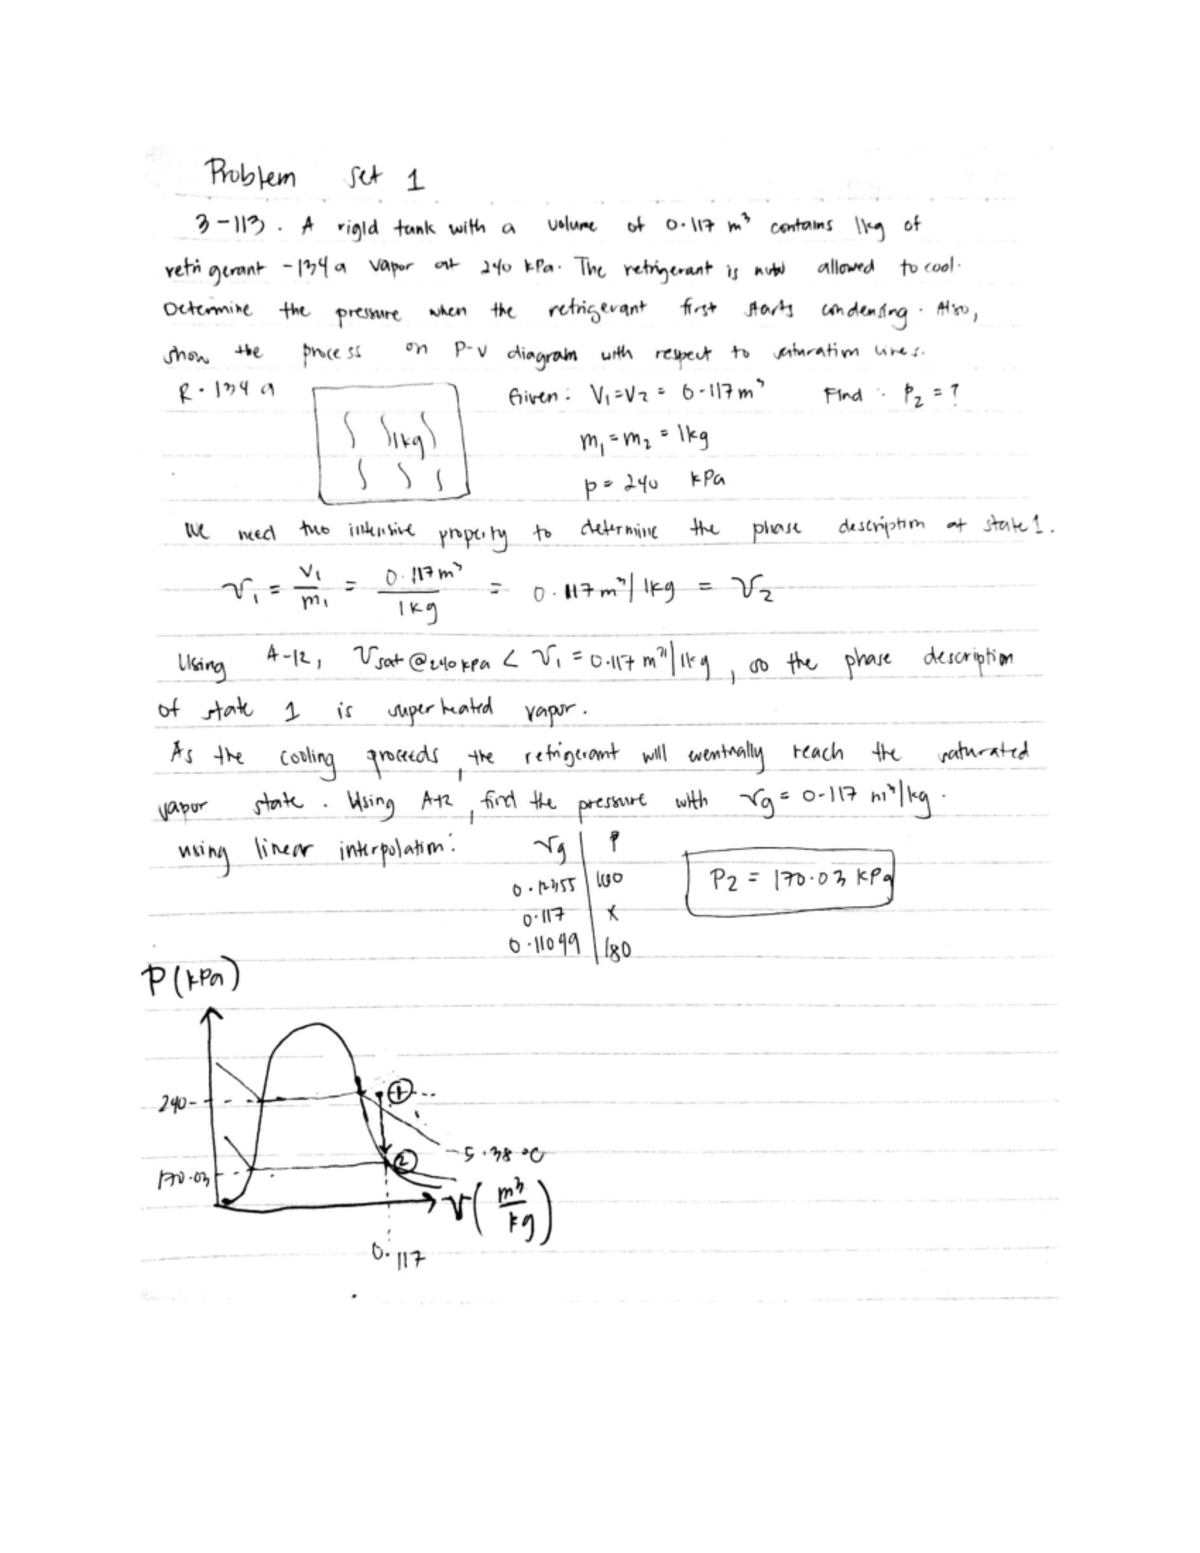 Problem set 1
3-113. A rigid tank with a volume of 0.117 m³ contains 1kg of
refrigerant -134a vapor at 240 kPa. The refrigerant is now allowed to cool.
Determine the pressure when the refrigerant first starts condensing. Also,
show the process on P-v diagram with respect to saturation lines.
R-134a
1kg
Given: V₁=V₂ = 0.117m³ Find: P₂ = ?
m₁=m₂ = 1kg
p= 240 kPa
We need two intensive property to determine the phase description at state 1.
v₁ = V₁/m₁ = 0.117m³/1kg = 0.117m³/1kg = v₂
Using A-12, vsat@240kPa < v₁ = 0.117 m³/1kg, so the phase description
of state 1 is superheated vapor.
As the cooling proceeds, the refrigerant will eventually reach the saturated
vapor state. Using A12, find the pressure with vg = 0.117 m³/kg.
using linear interpolation:
vg | P
0.12355 | 160
0.117 | x
0.11049 | 180
P2 = 170.03 kPa
P(kPa)
240
1
5.38 °C
170.03
2
v(m³/kg)
0.117